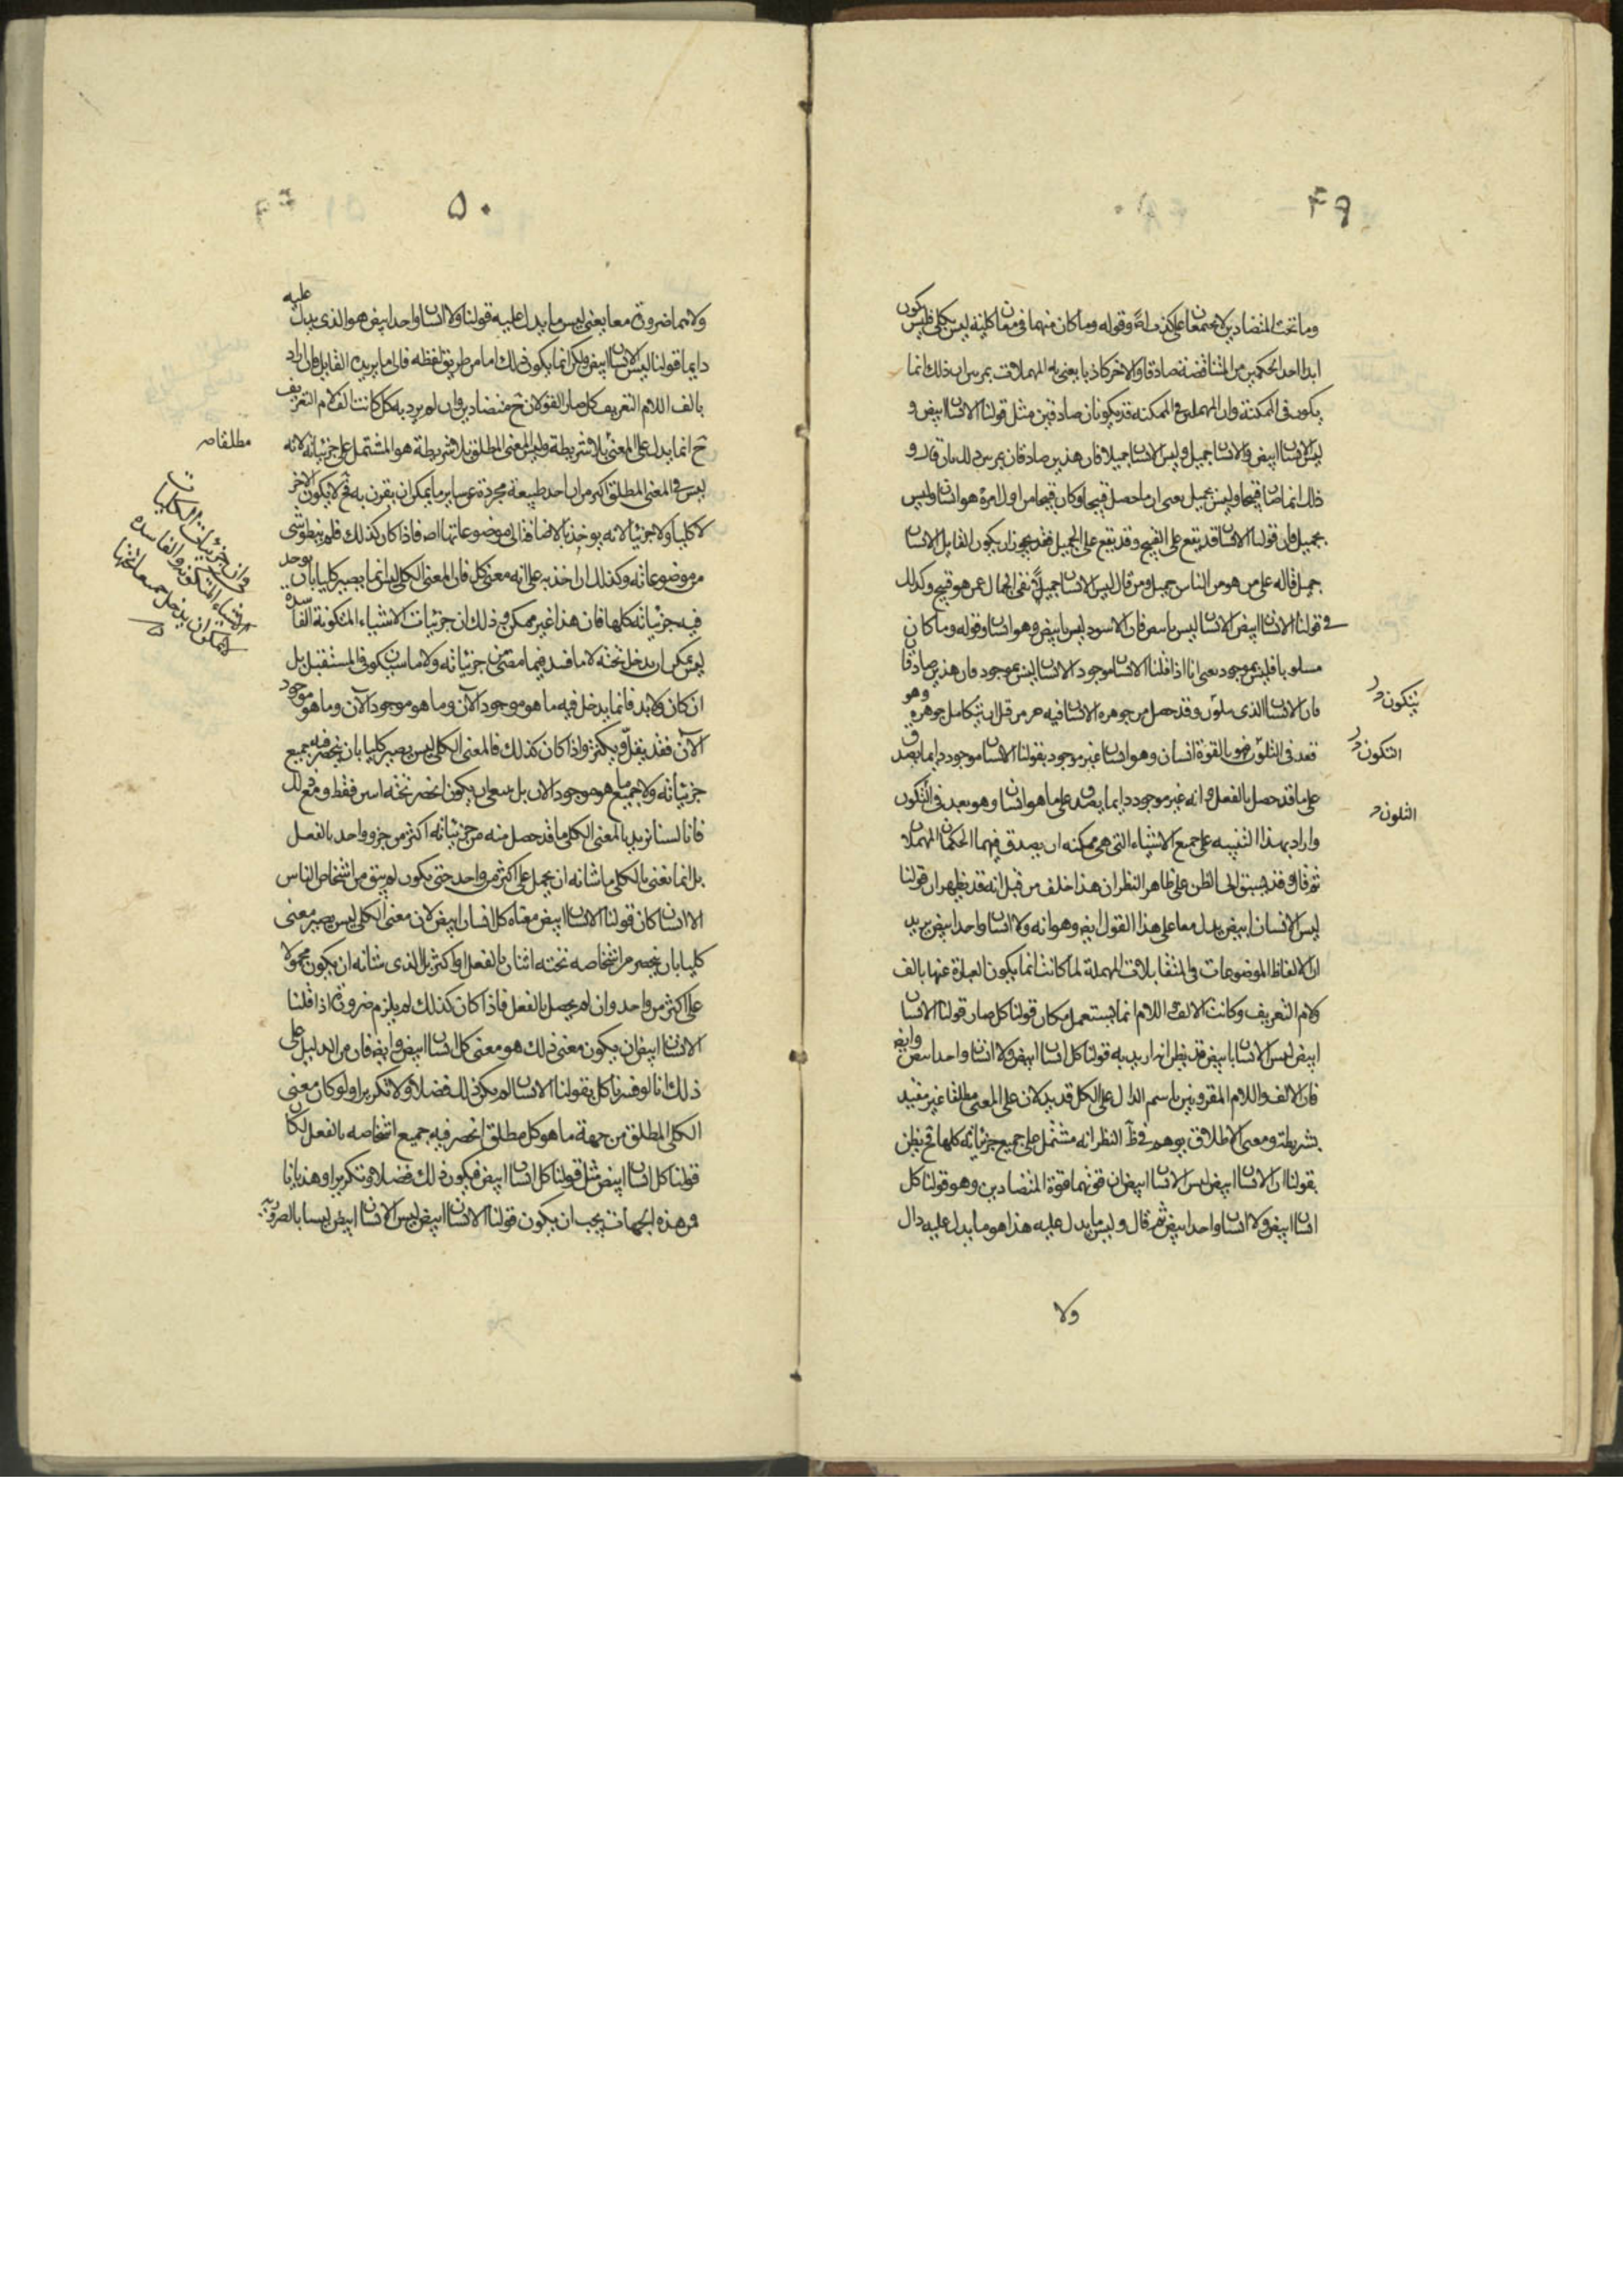 ٤٩
وما تحت المتضادين لا يجتمعان على كذب اصلا وقوله وما كان منهما في معان كلية ليس بكلي فليس يكون
ابدا احد الحكمين من المتناقضة صادقا والاخر كاذبا يعنى به المهملات ذلك انما
يكون في الممكنة وان المهملتين في الممكنة قد يكونان صادقين مثل قولنا الانسان ابيض و
ليس الانسان ابيض والانسان جميل وليس الانسان جميلا فان هذين صادقان ذلك بان قال و
ذلك انما صار قبيحا وليس بجميل يعنى ان ما حصل قبيحا وكان قبيحا من اول امره هو انسان وليس
بجميل فان قولنا الانسان قد يقع على القبيح وقد يقع على الجميل فقد يجوز ان يكون القايل الانسان
جميل قاله على من هو من الناس جميل ومن قال ليس الانسان جميلا نفى الجمال عمن هو قبيح وكذلك
في قولنا الانسان ابيض الانسان ليس بابيض فان الاسود ليس بابيض وهو انسان وقوله وما كان
مسلوبا فليس بموجود يعنى انا اذا قلنا الانسان موجود الانسان ليس بموجود فان هذين صادقان
فان الانسان الذى يتلون وقد حصل من جوهره الانسان فيه من قبل ان يتكامل جوهره وهو
بعد في التلون هو بالقوة انسان وهو انسان غير موجود بقولنا الانسان موجود دايما يصدق
على ما قد حصل بالفعل وانه غير موجود دايما يصدق على ما هو انسان وهو بعد في التكون
واراد بهذا التنبيه على جميع الاشياء التى هى ممكنة ان يصدق فيهما الحكمان المهملان
ثم قال وقد يسبق الى الظن على ظاهر النظر ان هذا خلف من قبل انه قد يظهر ان قولنا
ليس الانسان ابيض يدل معا على هذا القول ايضا وهو انه ولا انسان واحد ابيض يريد
ان الالفاظ الموضوعات في المتقابلات المهملة لما كانت انما يكون العبارة عنها بالف
ولام التعريف وكانت الالف واللام انما يستعمل مكان قولنا كل صار قولنا الانسان
ابيض ليس الانسان بابيض قد يظن انه اريد به قولنا كل انسان ابيض ولا انسان واحد ابيض وايضا
فان الالف واللام المقرونين باسم الدال على الكل قد يدلان على المعنى مطلقا غير مقيد
بشريطة ومعنى الاطلاق يوهم في ظ النظر انه مشتمل على جميع جزئياته كلها فح يظن
بقولنا ان الانسان ابيض ليس الانسان ابيض ان قوتهما قوة المتضادين وهو قولنا كل
انسان ابيض ولا انسان واحد ابيض ثم قال وليس ما يدل عليه هذا هو ما يدل عليه دال
ولا
يتكون
التكون
التلون
٥٠
ولا هما ضرورة معا يعنى ليس ما يدل عليه قولنا ولا انسان واحد ابيض هو الذى يدل عليه
دايما قولنا ليس الانسان ابيض ولكن انما يكون ذلك اما من طريق لفظه فلما يريده القايل فان اراد
بالف اللام التعريف كل صار القولان ح متضادين وان لم يرد به كل كانت الف لام التعريف
ح انما يدل على المعنى بلا شريطة وليس المعنى المطلق بلا شريطة هو المشتمل على جزئياته لانه
ليس في المعنى المطلق اكثر من ان احد طبيعة مجردة عن ساير ما يمكن ان يقرن به فح لا يكون الاخر
لا كليا ولا جزئيا لانه يوخذ بالاضافة الى موضوعاتها فاذا كان كذلك فلم ينطو شى
من موضوعاته وكذلك ان اخذ به على انه معنى كلى فان المعنى الكلى ليس انما يصير كليا بان يوجد
فيه جزئياته كلها فان هذا غير ممكن وذلك ان جزئيات الاشياء المتكونة الفاسدة
ليس يمكن ان يدخل تحته لا ما فسد فيما مضى من جزئياته ولا ما سيتكون في المستقبل بل
ان كان ولا بد فانما يدخل فيه ما هو موجود الآن وما هو موجود الآن وما هو موجود
الآن فقد يقل ويكثر واذا كان كذلك فالمعنى الكلى ليس يصير كليا بان ينحصر فيه جميع
جزئياته ولا جميع ما هو موجود الان بل يكون انحصر تحته اسن فقط ومع ذلك
فانا لسنا نريد بالمعنى الكلى ما قد حصل منه من جزئياته اكثر من جزو واحد بالفعل
بل انما نعنى بالكلى ما شانه ان يحمل على اكثر من واحد حتى يكون لو لم يبق من اشخاص الناس
الا انسان كان قولنا الانسان ابيض معناه كل انسان ابيض لان معنى الكلى ليس يصير معنى
كليا بان ينحصر من اشخاصه تحته اثنان بالفعل او اكثر بل الذى شانه ان يكون محمولا
على اكثر من واحد وان لم يحصل بالفعل فاذا كان كذلك لم يلزم ضرورة اذا قلنا
الانسان ابيض ان يكون معنى ذلك هو معنى كل انسان ابيض وايضا فان من الدليل على
ذلك انا لو قرنا كل بقولنا الانسان لم يكن ذلك فضلا ولا تكريرا ولو كان معنى
الكلى المطلق من جهة ما هو كل مطلق انحصر فيه جميع اشخاصه بالفعل لكان
قولنا كل انسان ابيض مثل قولنا كل انسان ابيض فيكون ذلك فضلا وتكريرا وهذيانا
فمن هذه الجهات يجب ان يكون قولنا الانسان ابيض ليس الانسان ابيض ليسا بالضرورة
مطلقا
وان جزئيات الكليات
في الاشياء المتكونة والفاسدة
لا يمكن ان يدخل جميعا تحتها